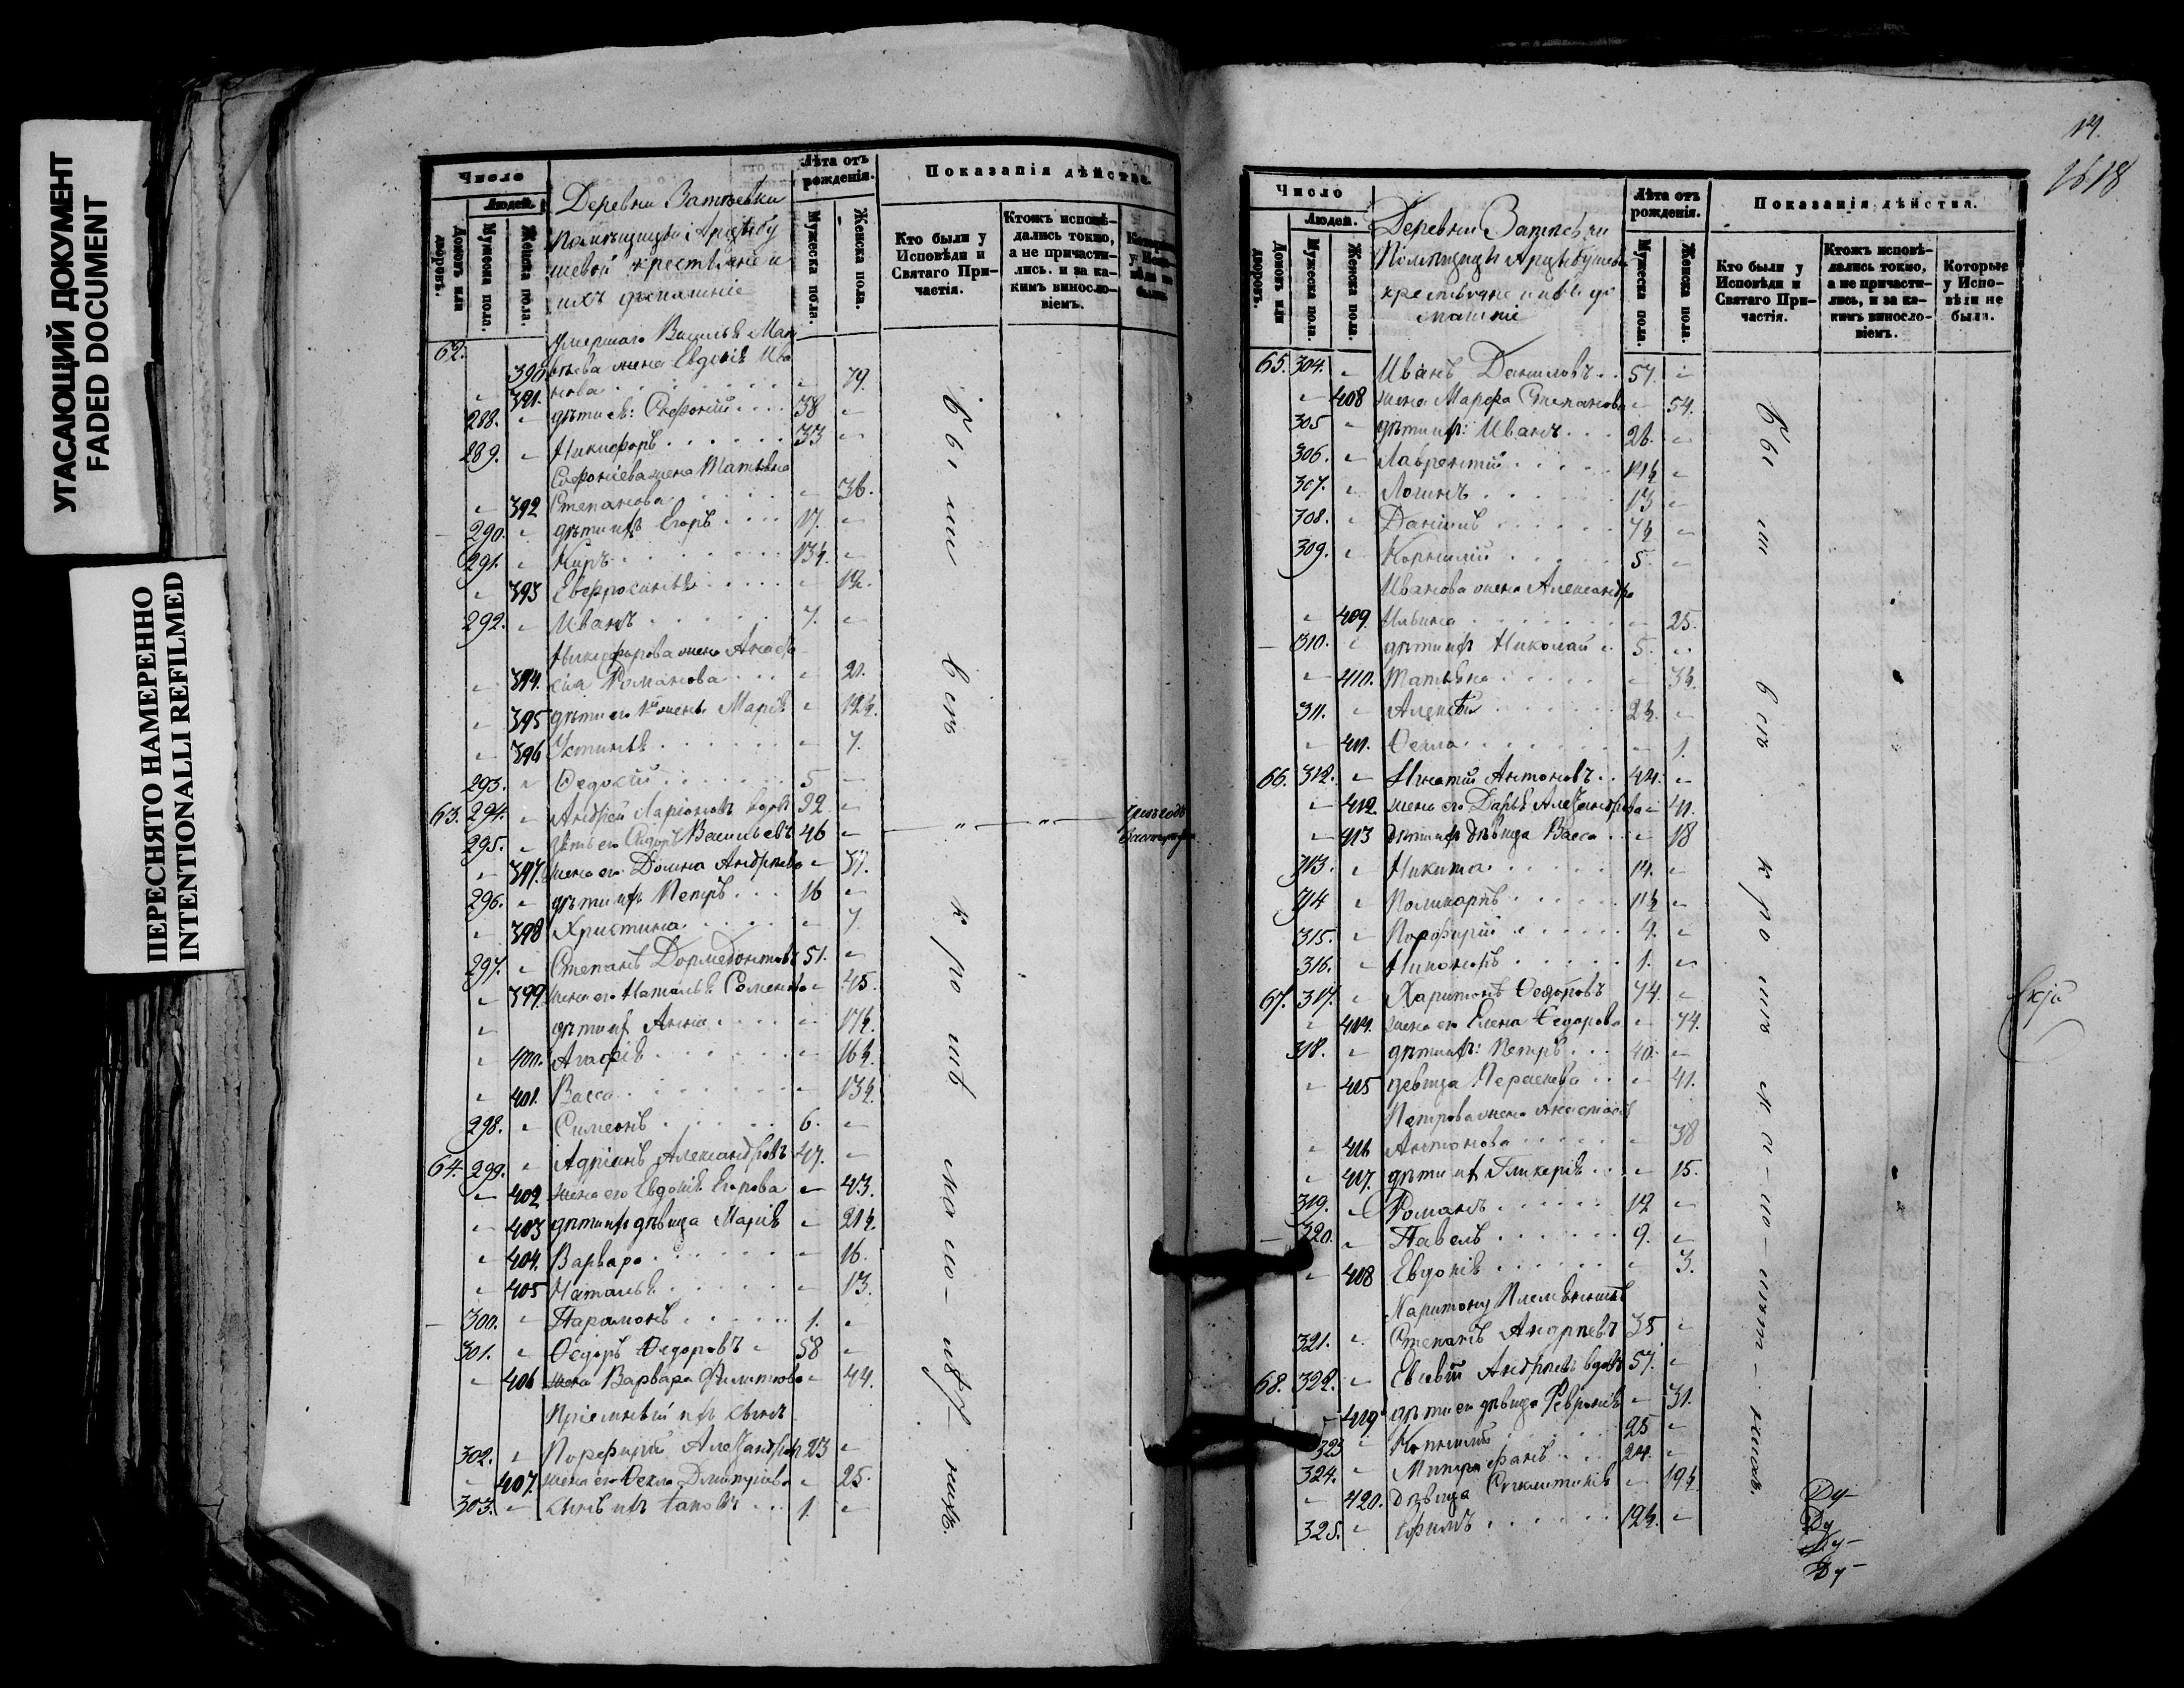 УГАСАЮЩИЙ ДОКУМЕНТ
FADED DOCUMENT
ПЕРЕСНЯТО НАМЕРЕННО
INTENTIONALLI REFILMED
Число
Людей.
Домовъ или дворовъ.
Мужеска пола.
Женска пола.
Лѣта отъ рожденія.
Мужеска пола.
Женска пола.
Показанія дѣйства.
Кто были у Исповѣди и Святаго Причастія.
Ктожъ исповѣдались токмо, а не причастились. и за какимъ винословіемъ.
Деревни
крестьяне и
ихъ домашніе
62.
умершаго Василья
390 жена Евдокія Ива
нова 79.
391.
288. дѣти ея: Софроній 38
289. Никифоръ 33
Софроніева жена Татьяна
392 Степанова 36.
290. дѣти ихъ Егоръ 17.
291. Киръ 13½
393 Евфросинья 12.
292. Иванъ 7.
Никифорова жена Анаста
394. сія Романова 21.
395 дѣти его 1й жены Марія 12½
396 Устинья 7.
293. Ѳедосій 5
63. 294. Андрей Ларіоновъ вдовъ 92
295. зять его Сидоръ Васильевъ 46
397. жена его Домна Андреева 37.
296. дѣти ихъ Петръ 16
398 Христина 7.
297. Степанъ Дормедонтовъ 51.
399. жена его Наталья Семенова 45.
дѣти ихъ Анна 17½
400. Агафія 16½
401. Васса 13½
298. Симеонъ 6.
64. 299. Адріанъ Александровъ 47.
402 жена его Евдокія Егорова 43.
403 дѣти ихъ дѣвица Марія 21½
404. Варвара 16.
405 Наталья 13.
300. Парамонъ 1.
301. Ѳедоръ Ѳедоровъ 58
406 жена Варвара Филиппова 44.
Пріемный ихъ сынъ
302. Порфирій Александровъ 23
407. жена его Ѳекла Дмитріева 25.
303. сынъ ихъ 1.
Бы ли всѣ кро мѣ
14.
1618
Число
Людей.
Домовъ или дворовъ.
Мужеска пола.
Женска пола.
Лѣта отъ рожденія.
Мужеска пола.
Женска пола.
Показанія дѣйства.
Кто были у Исповѣди и Святаго Причастія.
Ктожъ исповѣдались токмо, а не причастились, и за какимъ винословіемъ.
Которые у Исповѣди не были.
Деревни
крестьяне и ихъ до
машніе
65. 304. Иванъ Даниловъ 57.
408 жена Марфа Степанова 54.
305 дѣти ихъ: Иванъ 26.
306. Лаврентій 14½
307. Логинъ 13
308. Даніилъ 7½
309. Корнилій 5.
Иванова жена Александра
409. Ильина 25.
310. дѣти ихъ Николай 5.
410. Татьяна 3½
311. Алексѣй 2½
411. Ѳекла 1.
66. 312. Игнатій Антоновъ 44.
412. жена его Дарья Александрова 41.
413 дѣти ихъ дѣвица Васса 18
313. Никита 14.
314 Поликарпъ 11½
315. Порфирій 4.
316. Никаноръ 1.
67. 317. Харитонъ Ѳедоровъ 74.
414. жена его Елена Ѳедорова 74.
318. дѣти ихъ: Петръ 40.
415 девица Параскева 41.
Петрова жена Анастасія
416 Антонова 38
417. дѣти ихъ Гликерія 15.
319. Романъ 12
320. Павелъ 9.
418 Евдокія 3.
Харитону племянникъ
321. Степанъ Андреевъ 35
68. 322. Евсевій Андреевъ вдовъ 57.
419 дѣти его дѣвица Февронія 31.
323 Корнилій 25
324. Митрофанъ 24.
420. дѣвица Синклитикія 19½
325. Ефимъ 12½
Бы ли всѣ кро мѣ
Ду-
Ду
Ду-
Ду-